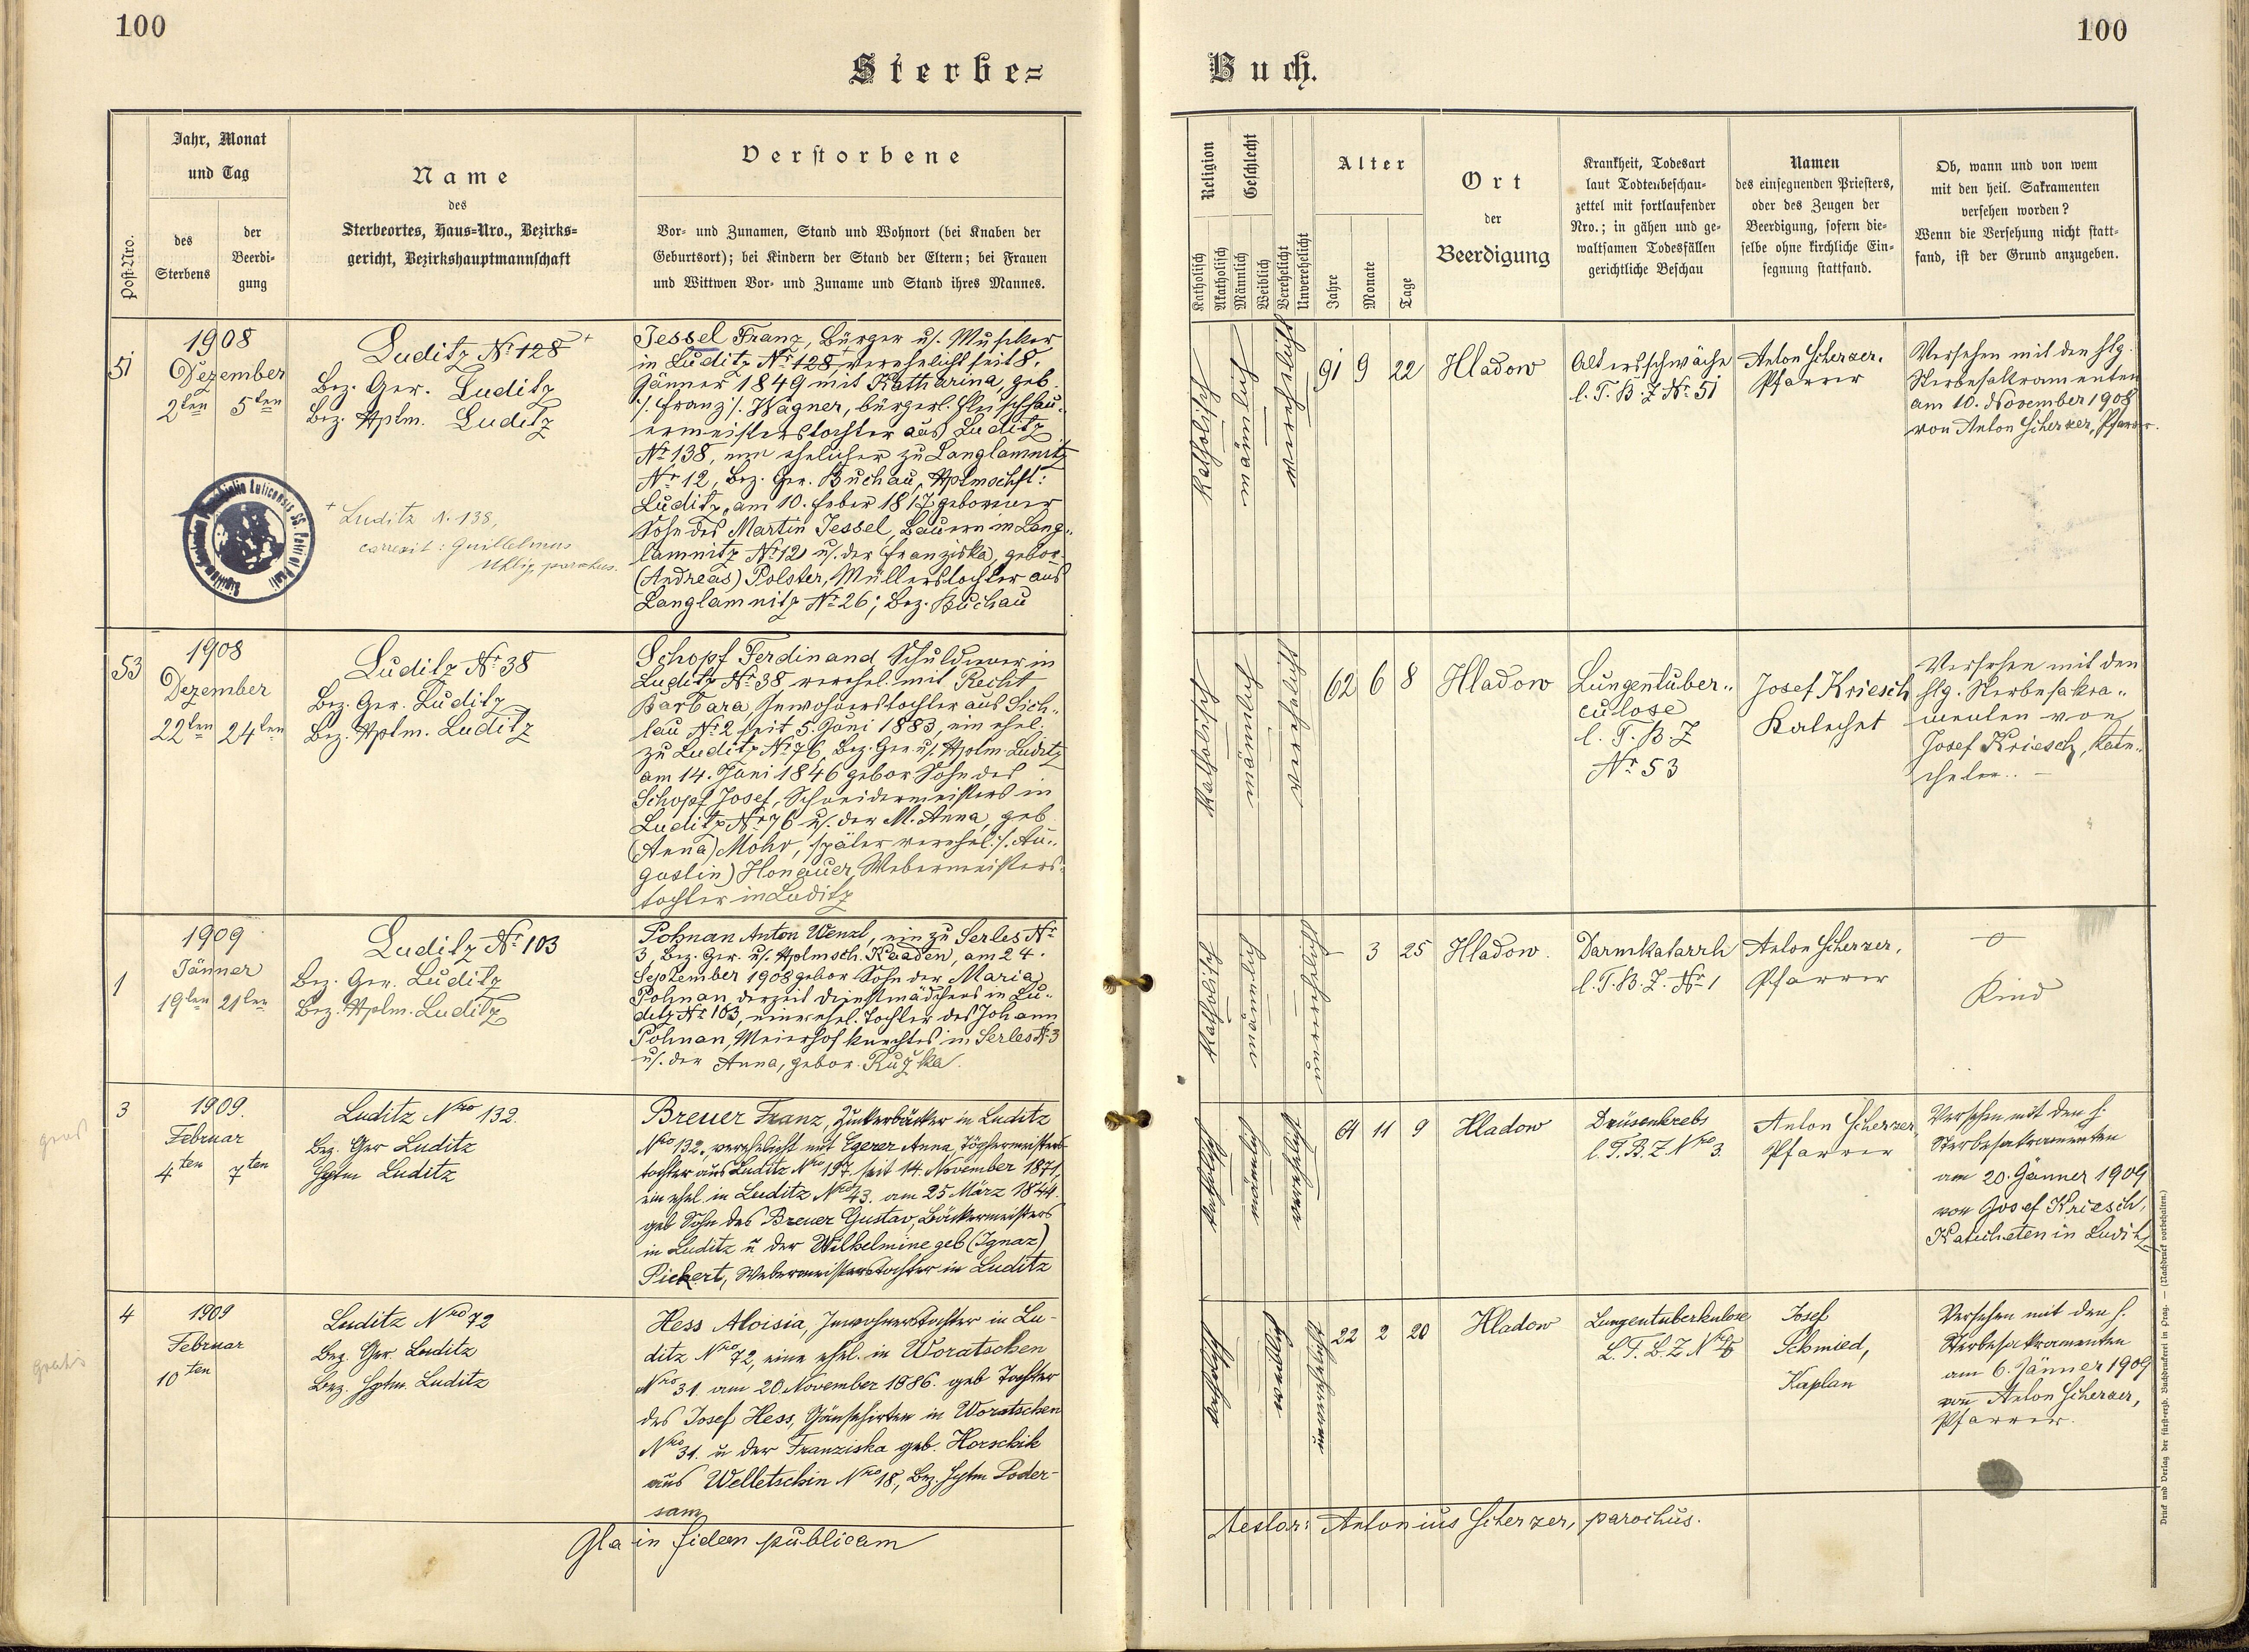 100
100
Sterbe=
Buch.
Post-Nro.
Jahr, Monat
und Tag
des
Sterbens
der
Beerdi-
gung
Name
des
Sterbeortes, Haus-Nro., Bezirks=
gericht, Bezirkshauptmannschaft
Verstorbene
Vor- und Zunamen, Stand und Wohnort (bei Knaben der
Geburtsort); bei Kindern der Stand der Eltern; bei Frauen
und Wittwen Vor- und Zuname und Stand ihres Mannes.
Religion
Katholisch
Akatholisch
Geschlecht
Männlich
Weiblich
Verehelicht
Unverehelicht
Alter
Jahre
Monate
Tage
Ort
der
Beerdigung
Krankheit, Todesart
laut Todtenbeschau-
zettel mit fortlaufender
Nro.; in gähen und ge-
waltsamen Todesfällen
gerichtliche Beschau
Namen
des einsegnenden Priesters,
oder des Zeugen der
Beerdigung, sofern die-
selbe ohne kirchliche Ein-
segnung stattfand.
Ob, wann und von wem
mit den heil. Sakramenten
versehen worden?
Wenn die Versehung nicht statt-
fand, ist der Grund anzugeben.
51
1908
Dezember
2ten 5ten
Luditz Nr 128 +
Bez. Ger. Luditz
Bez. Hptm. Luditz
+ Luditz N. 138,
correxit: Guillelmus
Uhlig, parochus.
Jessel Franz, Bürger u. Musiker
in Luditz Nr 128,+ verehelicht seit 8.
Jänner 1849 mit Katharina, geb.
/. Franz /. Wagner, bürgerl. Fleischhau-
ermeisterstochter aus Luditz
Nr 138, ein ehelicher zu Langlamnitz
Nr 12, Bez. Ger. Buchau, Hptmschft:
Luditz, am 10. Feber 1817 geborener
Sohn des Martin Jessel, Bauern in Lang-
lamnitz Nr 12 u. der Franziska, gebor.
(Andreas) Polster, Müllerstochter aus
Langlamnitz Nr 26; Bez. Buchau
Katholisch
männlich
verehelicht
91 9 22
Hladow
Altersschwäche
l. T. B. Z. Nr 51
Anton Scherzer,
Pfarrer
Versehen mit den hlg.
Sterbesakramenten
am 10. November 1908
von Anton Scherzer, Pfarrer.
53
1908
Dezember
22ten 24ten
Luditz Nr 38
Bez. Ger. Luditz
Bez. Hptm. Luditz
Schopf Ferdinand, Schuldiener in
Luditz Nr 38 verehel. mit Recht
Barbara, Inwohnerstochter aus Sich-
lau Nr 2 seit 5. Juni 1883, ein ehel.
zu Luditz Nr 76, Bez. Ger. u. Hptm. Luditz
am 14. Juni 1846 gebor. Sohn des
Schopf Josef, Schneidermeisters in
Luditz Nr 76 u. der M. Anna, geb.
(Anna) Mohr, später verehel. /. Au-
gustin) Honauer, Webermeisters-
tochter in Luditz
Katholisch
männlich
verehelicht
62 6 8
Hladow
Lungentuber-
culose
l. T. B. Z
Nr 53
Josef Kriesch
Katechet
Versehen mit den
hlg. Sterbesakra-
menten von
Josef Kriesch, Kate-
cheten. –
1
1909
Jänner
19ten 21ten
Luditz Nr 103
Bez. Ger. Luditz
Bez. Hptm. Luditz
Pohnan Anton Wenzl, ein zu Serles Nr
3, Bez. Ger. u. Hptmsch. Kaaden, am 24.
September 1908 gebor. Sohn der Maria
Pohnan, derzeit Dienstmädchens in Lu-
ditz Nr 103, einer ehel. Tochter des Johann
Pohnan, Meierhofknechtes in Serles Nr 3
u. der Anna, gebor. Ružka.
Katholisch
männlich
unverehelicht
– 3 25
Hladow.
Darmkatarrh
l. T. B. Z. Nr 1
Anton Scherzer,
Pfarrer
–o–
Kind
3
1909.
Februar
4ten 7ten
Luditz Nro 132.
Bez. Ger Luditz
Hptm Luditz
Breuer Franz, Zuckerbäcker in Luditz
Nro 132., verehelicht mit Egerer Anna, Töpfermeisters-
tochter aus Luditz Nro 197. seit 14. November 1871,
ein ehel. in Luditz Nro 43. am 25 März 1844.
geb Sohn des Breuer Gustav, Bäckermeisters
in Luditz u der Wilhelmine geb (Ignaz)
Pickert, Webermeisterstochter in Luditz
katholisch
männlich
verehelicht
64 11 9
Hladow
Drüsenkrebs
l. T. B. Z Nro 3.
Anton Scherzer,
Pfarrer
Versehen mit den h.
Sterbesakramenten
am 20. Jänner 1909
von Josef Kriesch,
Katecheten in Luditz
4
gratis
1909
Februar
10ten
Luditz Nro 72
Bez. Ger Luditz
Bez. Hptm. Luditz
Hess Aloisia, Inwohnerstochter in Lu-
ditz Nro 72, eine ehel. in Woratschen
Nro 31. am 20 November 1886. geb Tochter
des Josef Hess, Gänsehirten in Woratschen
Nro 31. u der Franziska geb. Horschik
aus Welletschin Nro 18., Bez. Hptm Poder-
sam
katholisch
weiblich
unverehelicht
22 2 20
Hladow
Lungentuberkulose
L. T. B. Z Nro
Josef
Schmied,
Kaplan
Versehen mit den h.
Sterbesakramenten
am 6. Jänner 1909
von Anton Scherzer,
Pfarrer.
in fidem publicam
testor: Antonius Scherzer, parochus.
Druck und Verlag der fürst-erzb. Buchdruckerei in Prag. — (Nachdruck vorbehalten.)